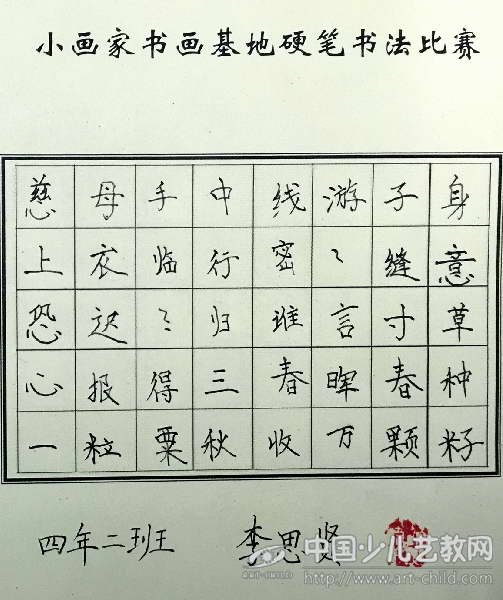 小画家书画基地硬笔书法比赛
慈母手中线游子身
上衣临行密〻缝意
恐迟〻归谁言寸草
心报得三春晖春种
一粒粟秋收万颗籽
四年二班 李思贤
中国少儿艺教网
http://www.art-child.com